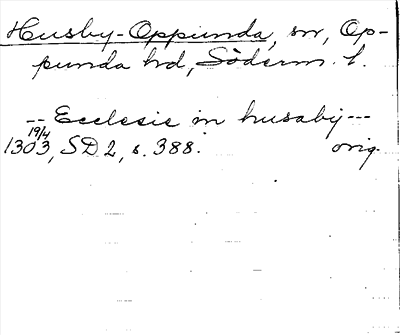 Husby-Oppunda, sn, Op-
punda hd, Söderm. l.
-- Ecclesie in husaby ---
19/4
1303, SD 2, s. 388. orig.